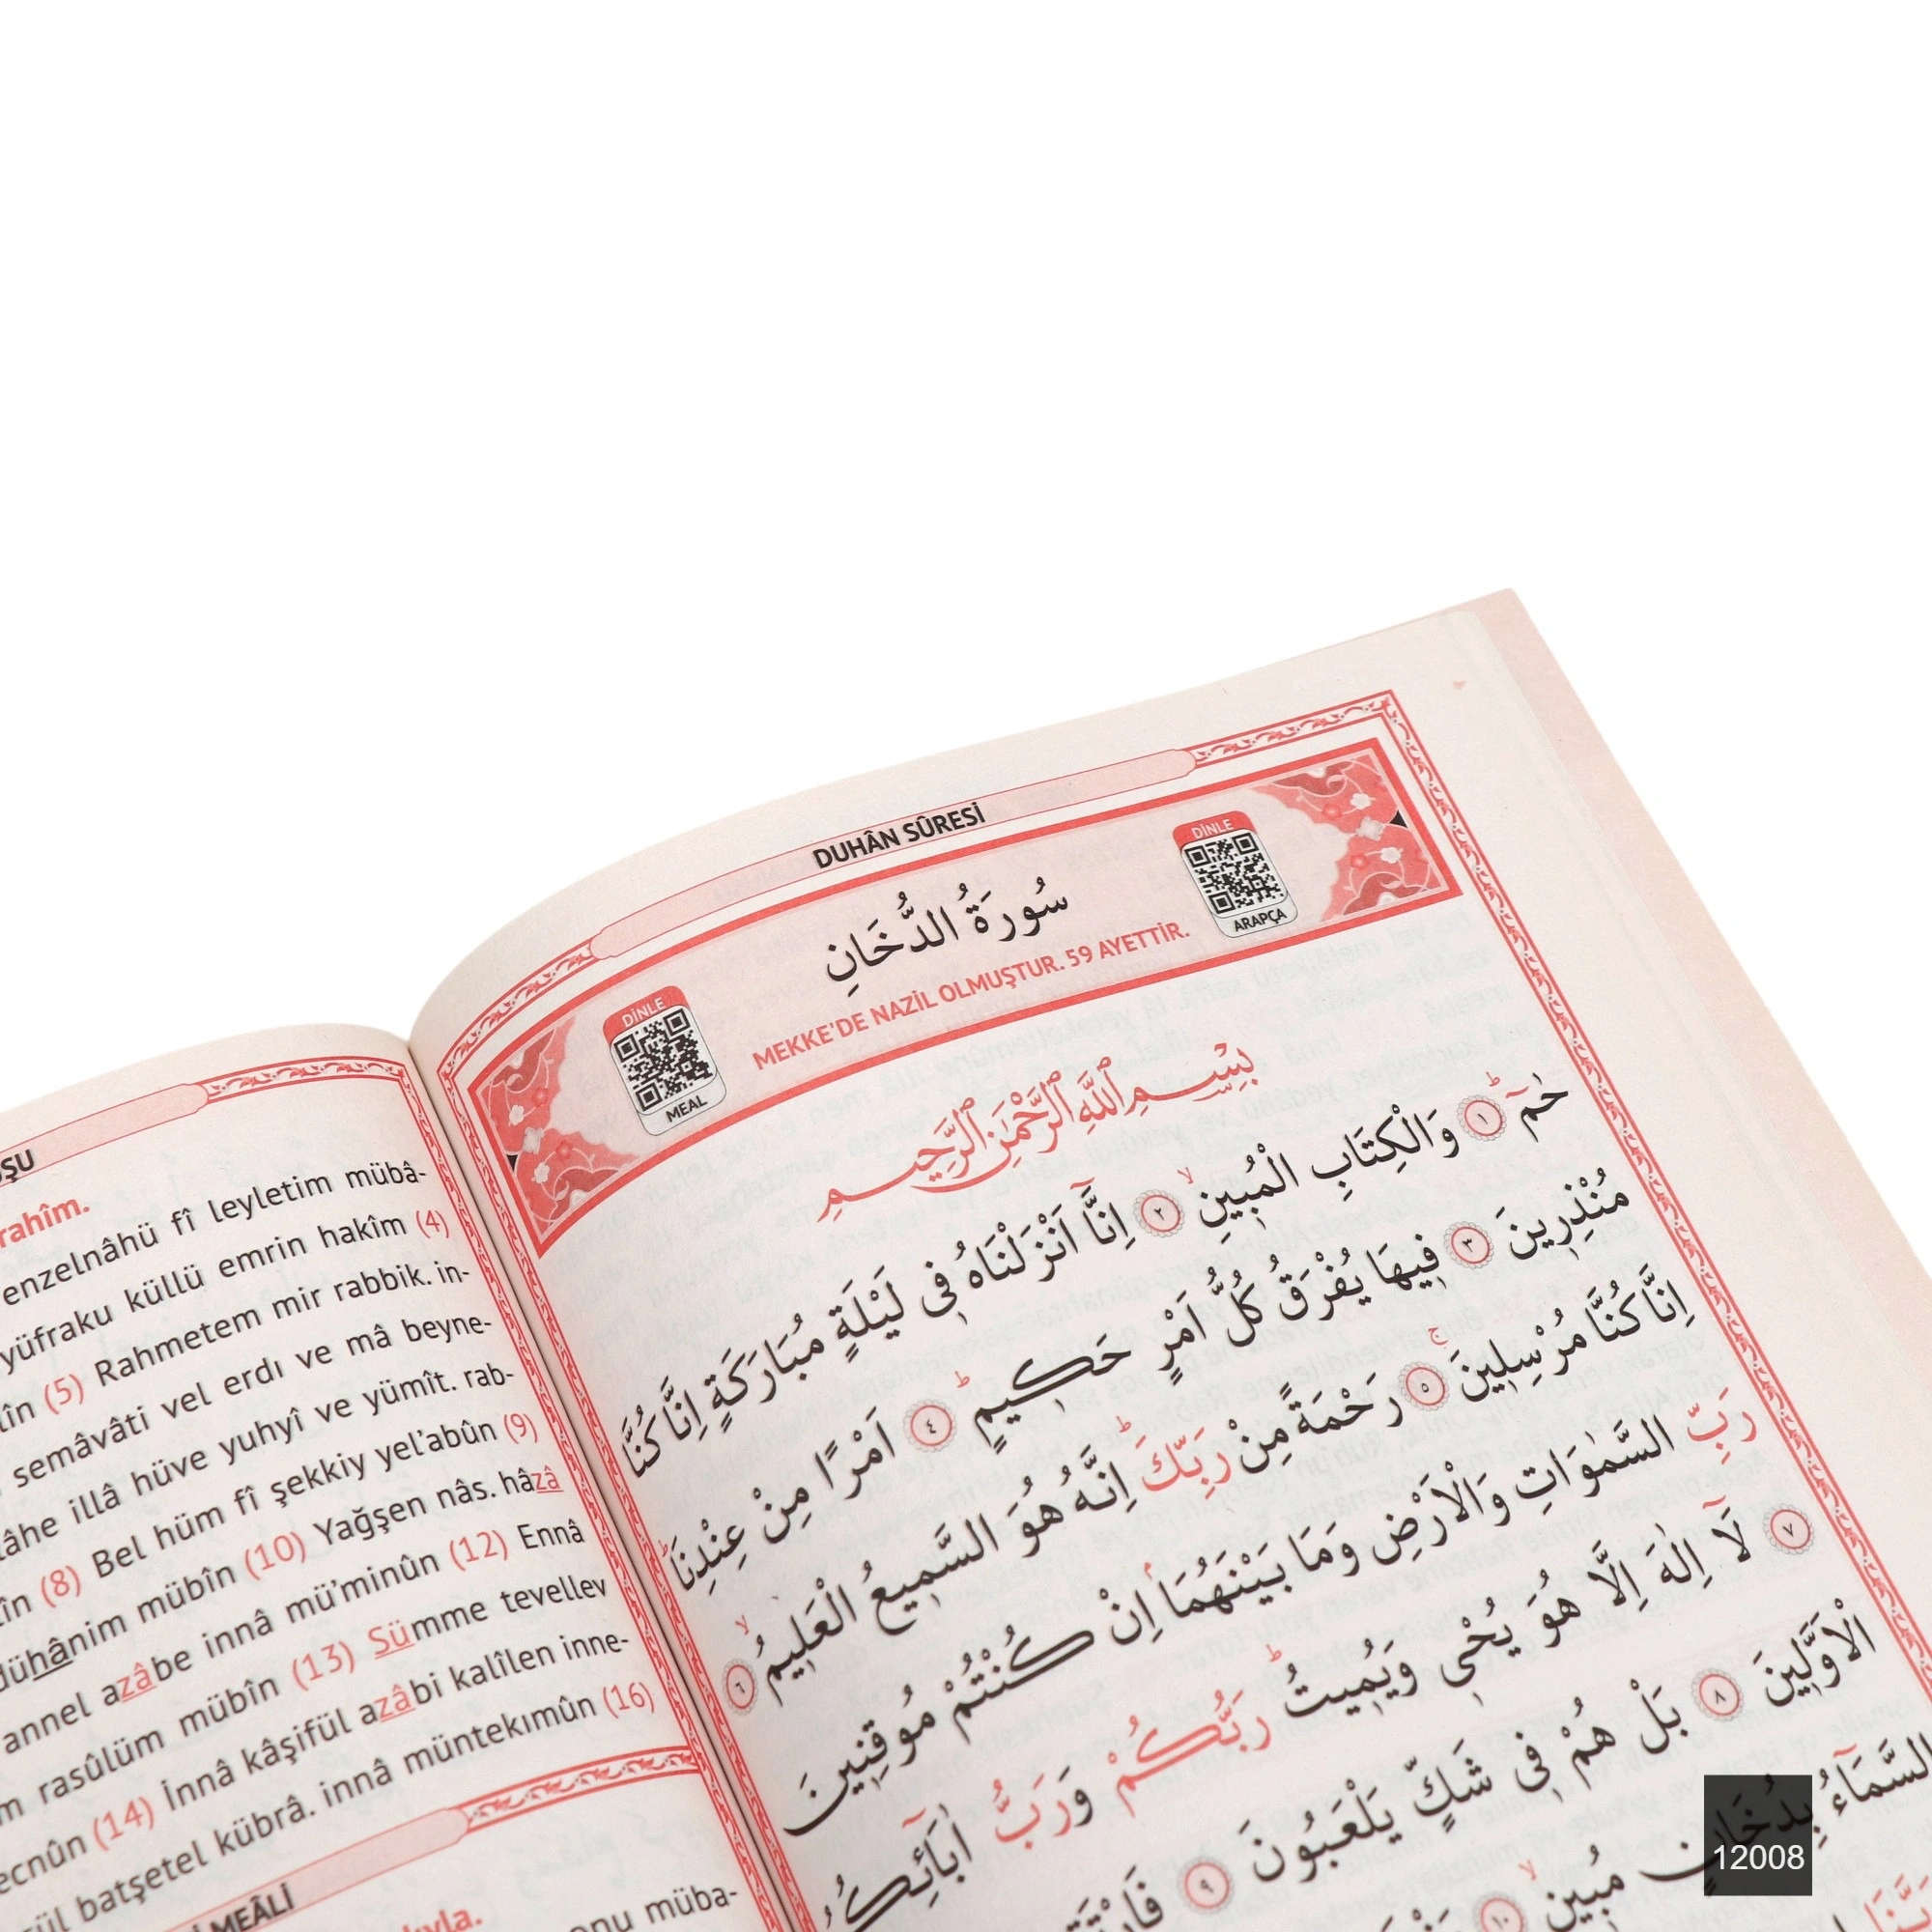 ŞU
rahîm.
enzelnâhü fî leyletim mübâ-
yüfraku küllü emrin hakîm (4)
în (5) Rahmetem mir rabbik. in-
semâvâti vel erdı ve mâ beyne-
lâhe illâ hüve yuhyî ve yümît. rab-
în (8) Bel hüm fî şekkiy yel'abûn (9)
dühânim mübîn (10) Yağşen nâs. hâzâ
annel azâbe innâ mü'minûn (12) Ennâ
m rasûlüm mübîn (13) Sümme tevellev
ecnûn (14) İnnâ kâşifül azâbi kalîlen inne-
ül batşetel kübrâ. innâ müntekımûn (16)
MEÂLİ
onu müba-
DUHÂN SÛRESİ
سُورَةُ الدُّخَانِ
DİNLE
ARAPÇA
DİNLE
MEAL
MEKKE'DE NAZİL OLMUŞTUR. 59 AYETTİR.
بِسْمِ اللَّهِ الرَّحْمٰنِ الرَّحِيمِ
حٰمٓ ١ وَالْكِتَابِ الْمُبِينِ ٢ اِنَّٓا اَنْزَلْنَاهُ فِى لَيْلَةٍ مُبَارَكَةٍ اِنَّا كُنَّا
مُنْذِرِينَ ٣ فِيهَا يُفْرَقُ كُلُّ اَمْرٍ حَكِيمٍ ٤ اَمْرًا مِنْ عِنْدِنَا
اِنَّا كُنَّا مُرْسِلِينَ ٥ رَحْمَةً مِنْ رَبِّكَ اِنَّهُ هُوَ السَّمِيعُ الْعَلِيمُ ٦
رَبِّ السَّمٰوَاتِ وَالْاَرْضِ وَمَا بَيْنَهُمَا اِنْ كُنْتُمْ مُوقِنِينَ
٧ لَٓا اِلٰهَ اِلَّا هُوَ يُحْيِى وَيُمِيتُ رَبُّكُمْ وَرَبُّ اٰبَٓائِكُمُ
الْاَوَّلِينَ ٨ بَلْ هُمْ فِى شَكٍّ يَلْعَبُونَ ٩
السَّمَٓاءُ بِدُخَانٍ مُبِينٍ ١٠
12008